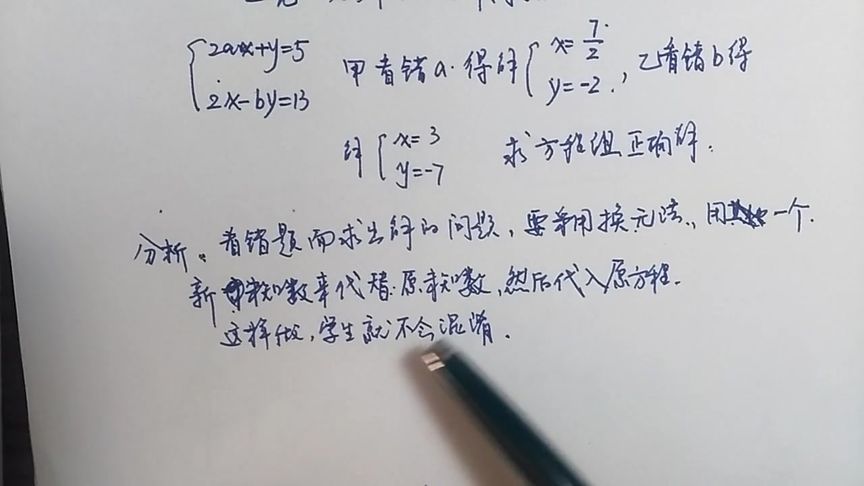 {2ax+y=5
2x-by=13 甲看错a.得解{x=7/2
y=-2., 乙看错b得
解{x=3
y=-7 求方程组正确解.
分析。看错题而求出解的问题,要采用换元法.,用一个.
新未知数来代替原未知数,然后代入原方程.
这样做,学生就不会混淆.